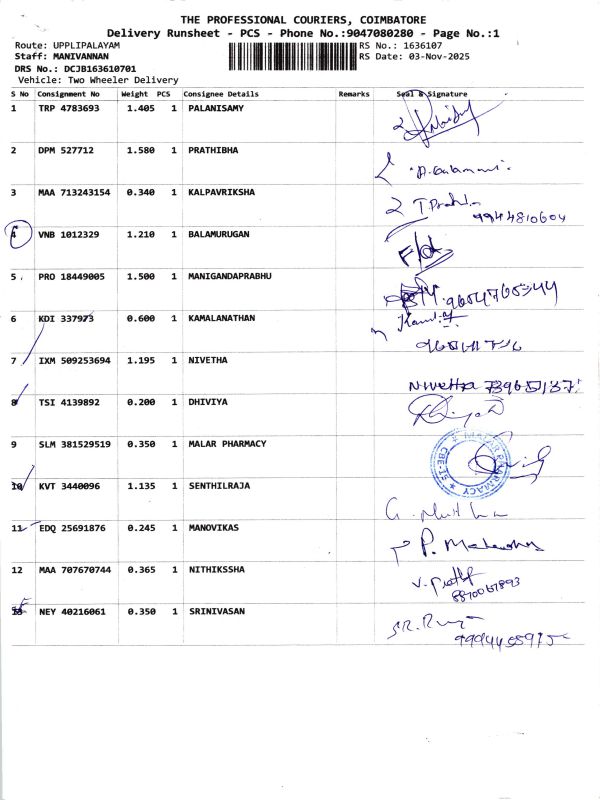 THE PROFESSIONAL COURIERS, COIMBATORE
Delivery Runsheet - PCS - Phone No.:9047080280 - Page No.:1
Route: UPPLIPALAYAM RS No.: 1636107
Staff: MANIVANNAN RS Date: 03-Nov-2025
DRS No.: DCJB163610701
Vehicle: Two Wheeler Delivery
S No Consignment No Weight PCS Consignee Details Remarks Seal & Signature
1 TRP 4783693 1.405 1 PALANISAMY
2 DPM 527712 1.580 1 PRATHIBHA
3 MAA 713243154 0.340 1 KALPAVRIKSHA
9944810604
4 VNB 1012329 1.210 1 BALAMURUGAN
5 PRO 18449005 1.500 1 MANIGANDAPRABHU
6 KDI 337973 0.600 1 KAMALANATHAN
7 IXM 509253694 1.195 1 NIVETHA
Nivetha
8 TSI 4139892 0.200 1 DHIVIYA
9 SLM 381529519 0.350 1 MALAR PHARMACY
MALAR PHARMACY
10 KVT 3440096 1.135 1 SENTHILRAJA
11 EDQ 25691876 0.245 1 MANOVIKAS
12 MAA 707670744 0.365 1 NITHIKSSHA
13 NEY 40216061 0.350 1 SRINIVASAN